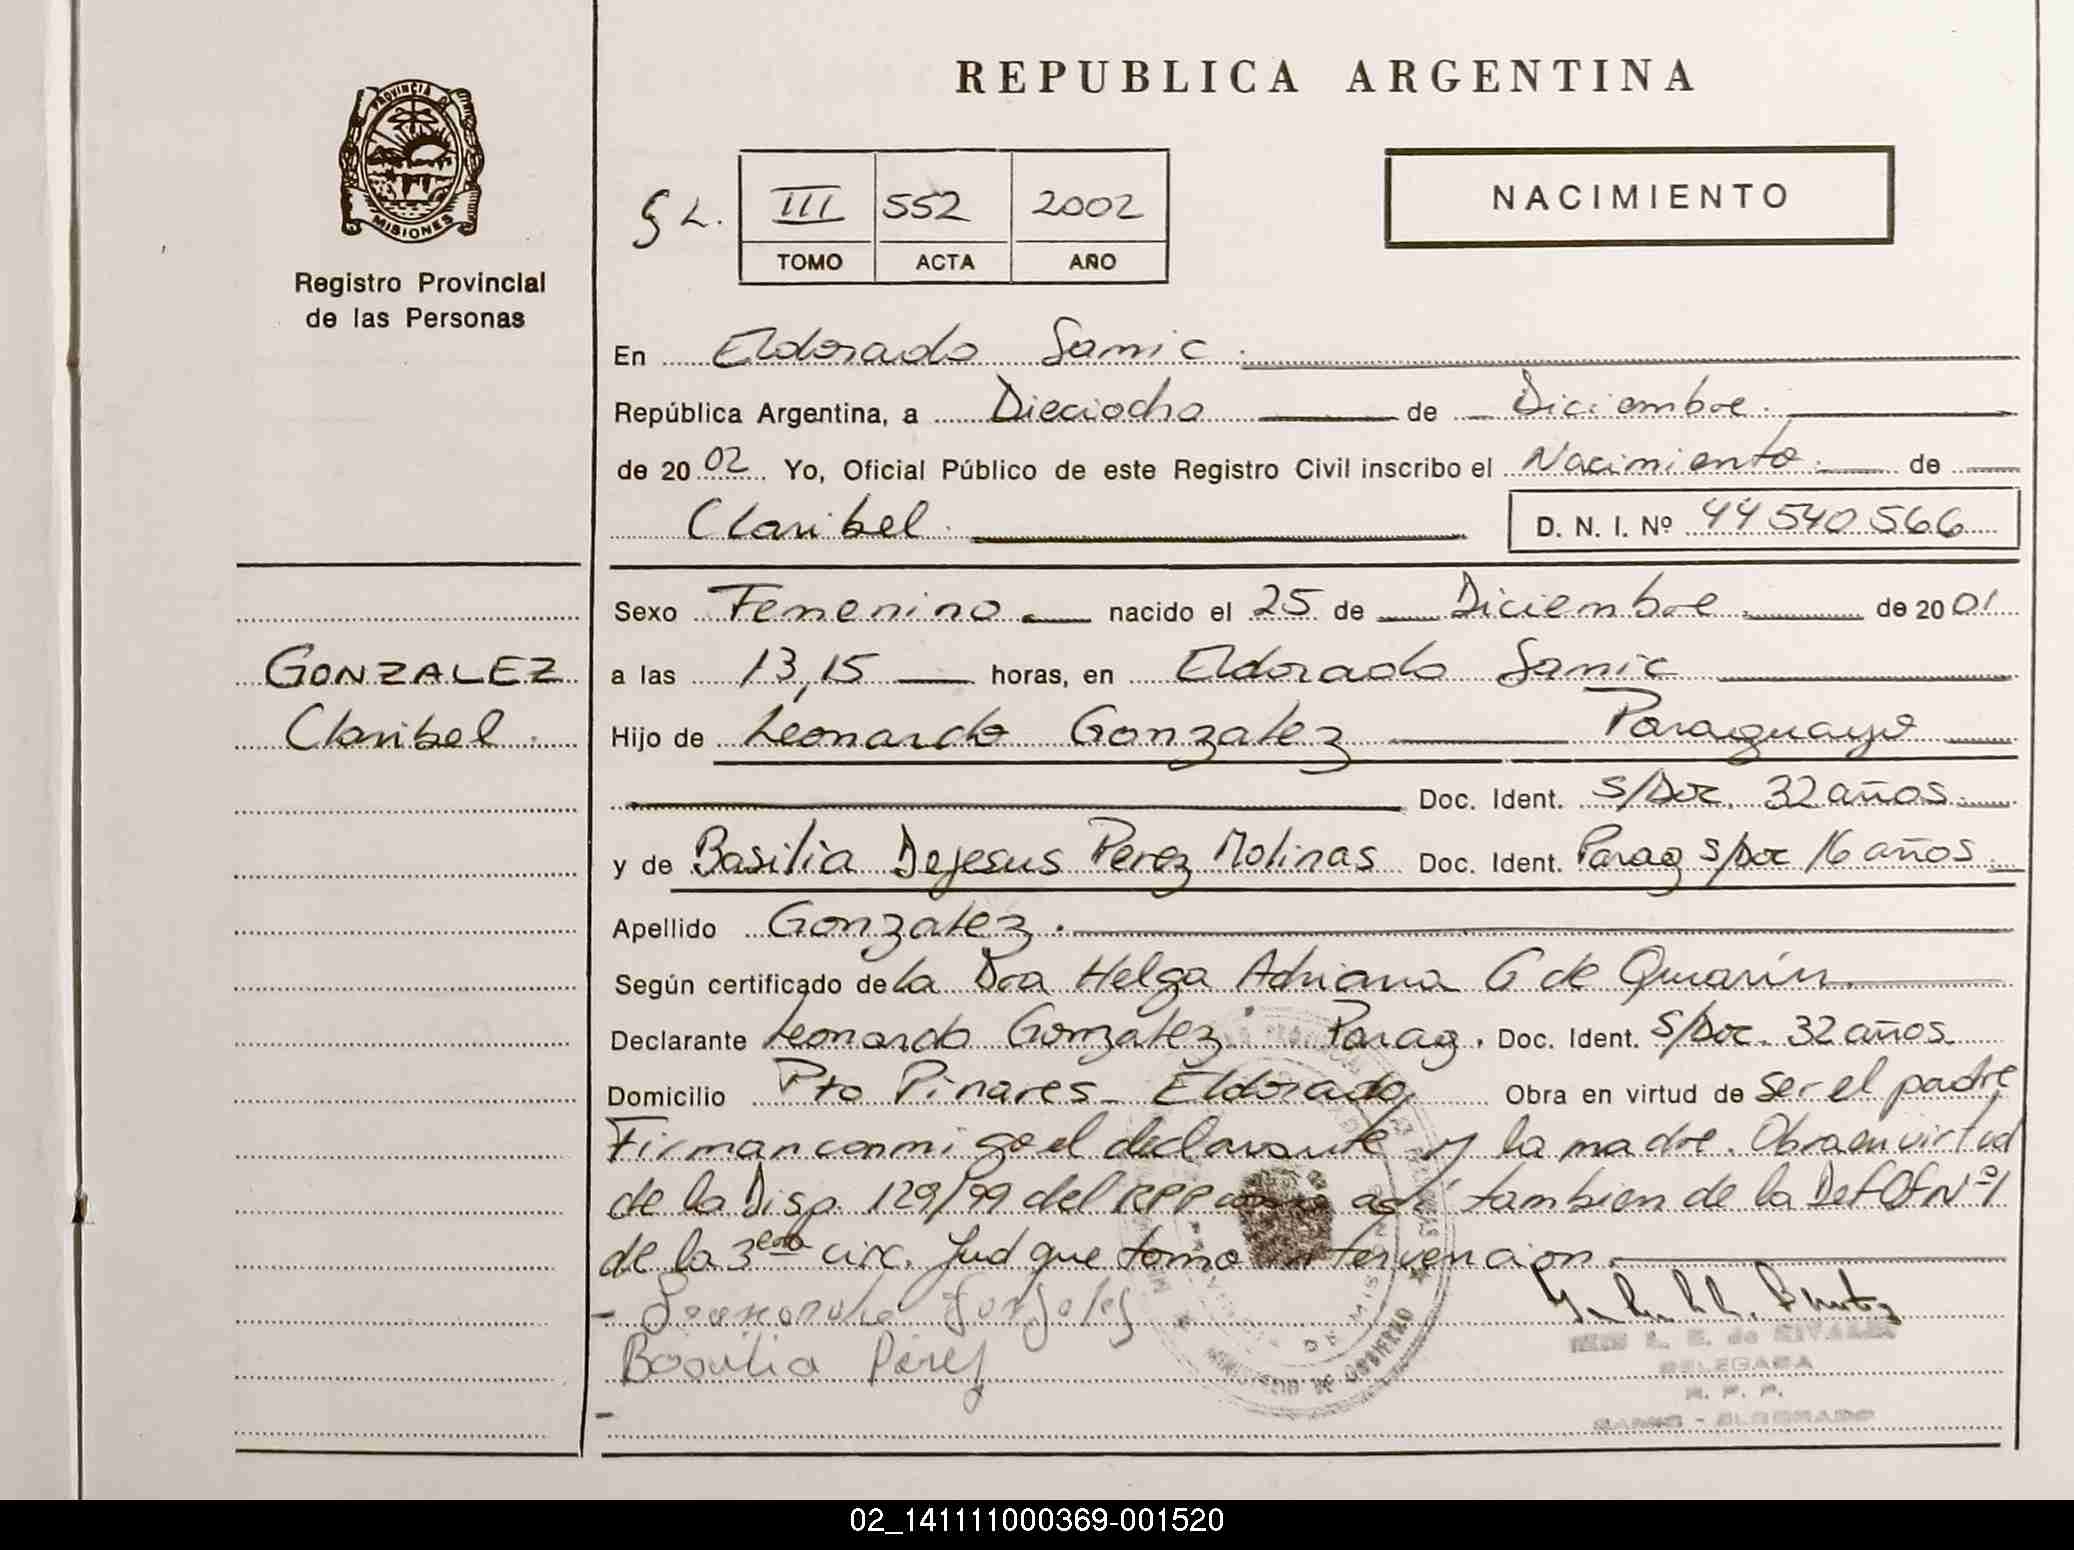 REPUBLICA ARGENTINA
PROVINCIA DE
MISIONES
Registro Provincial
de las Personas
III 552 2002
TOMO ACTA AÑO
NACIMIENTO
En Eldorado Samic.
República Argentina, a Dieciocho de Diciembre.
de 2002 Yo, Oficial Público de este Registro Civil inscribo el Nacimiento. de
Claribel. D. N. I. Nº 44540566
GONZALEZ
Claribel.
Sexo Femenino. nacido el 25 de Diciembre. de 2001
a las 13,15 horas, en Eldorado Samic
Hijo de Leonardo Gonzalez Paraguayo
Doc. Ident. S/Doc. 32 años.
y de Basilia Dejesus Perez Molinas Doc. Ident. Parag S/Doc 16 años.
Apellido Gonzalez.
Según certificado de la Dra Helga Adriana G de Quarin.
Declarante Leonardo Gonzalez. Parag. Doc. Ident. S/Doc. 32 años
Domicilio Pto Pinares - Eldorado Obra en virtud de ser el padre
Firman conmigo el declarante y la madre. Obra en virtud
de la Disp. 129/99 del RPP como así tambien de la Def Of Nº 1
de la 3era circ. Jud que tomo intervencion.
Basilia Perez
DELEGADA
R. P. P.
SAMIC - ELDORADO
MINISTERIO DE GOBIERNO
PROVINCIA DE MISIONES
02_141111000369-001520